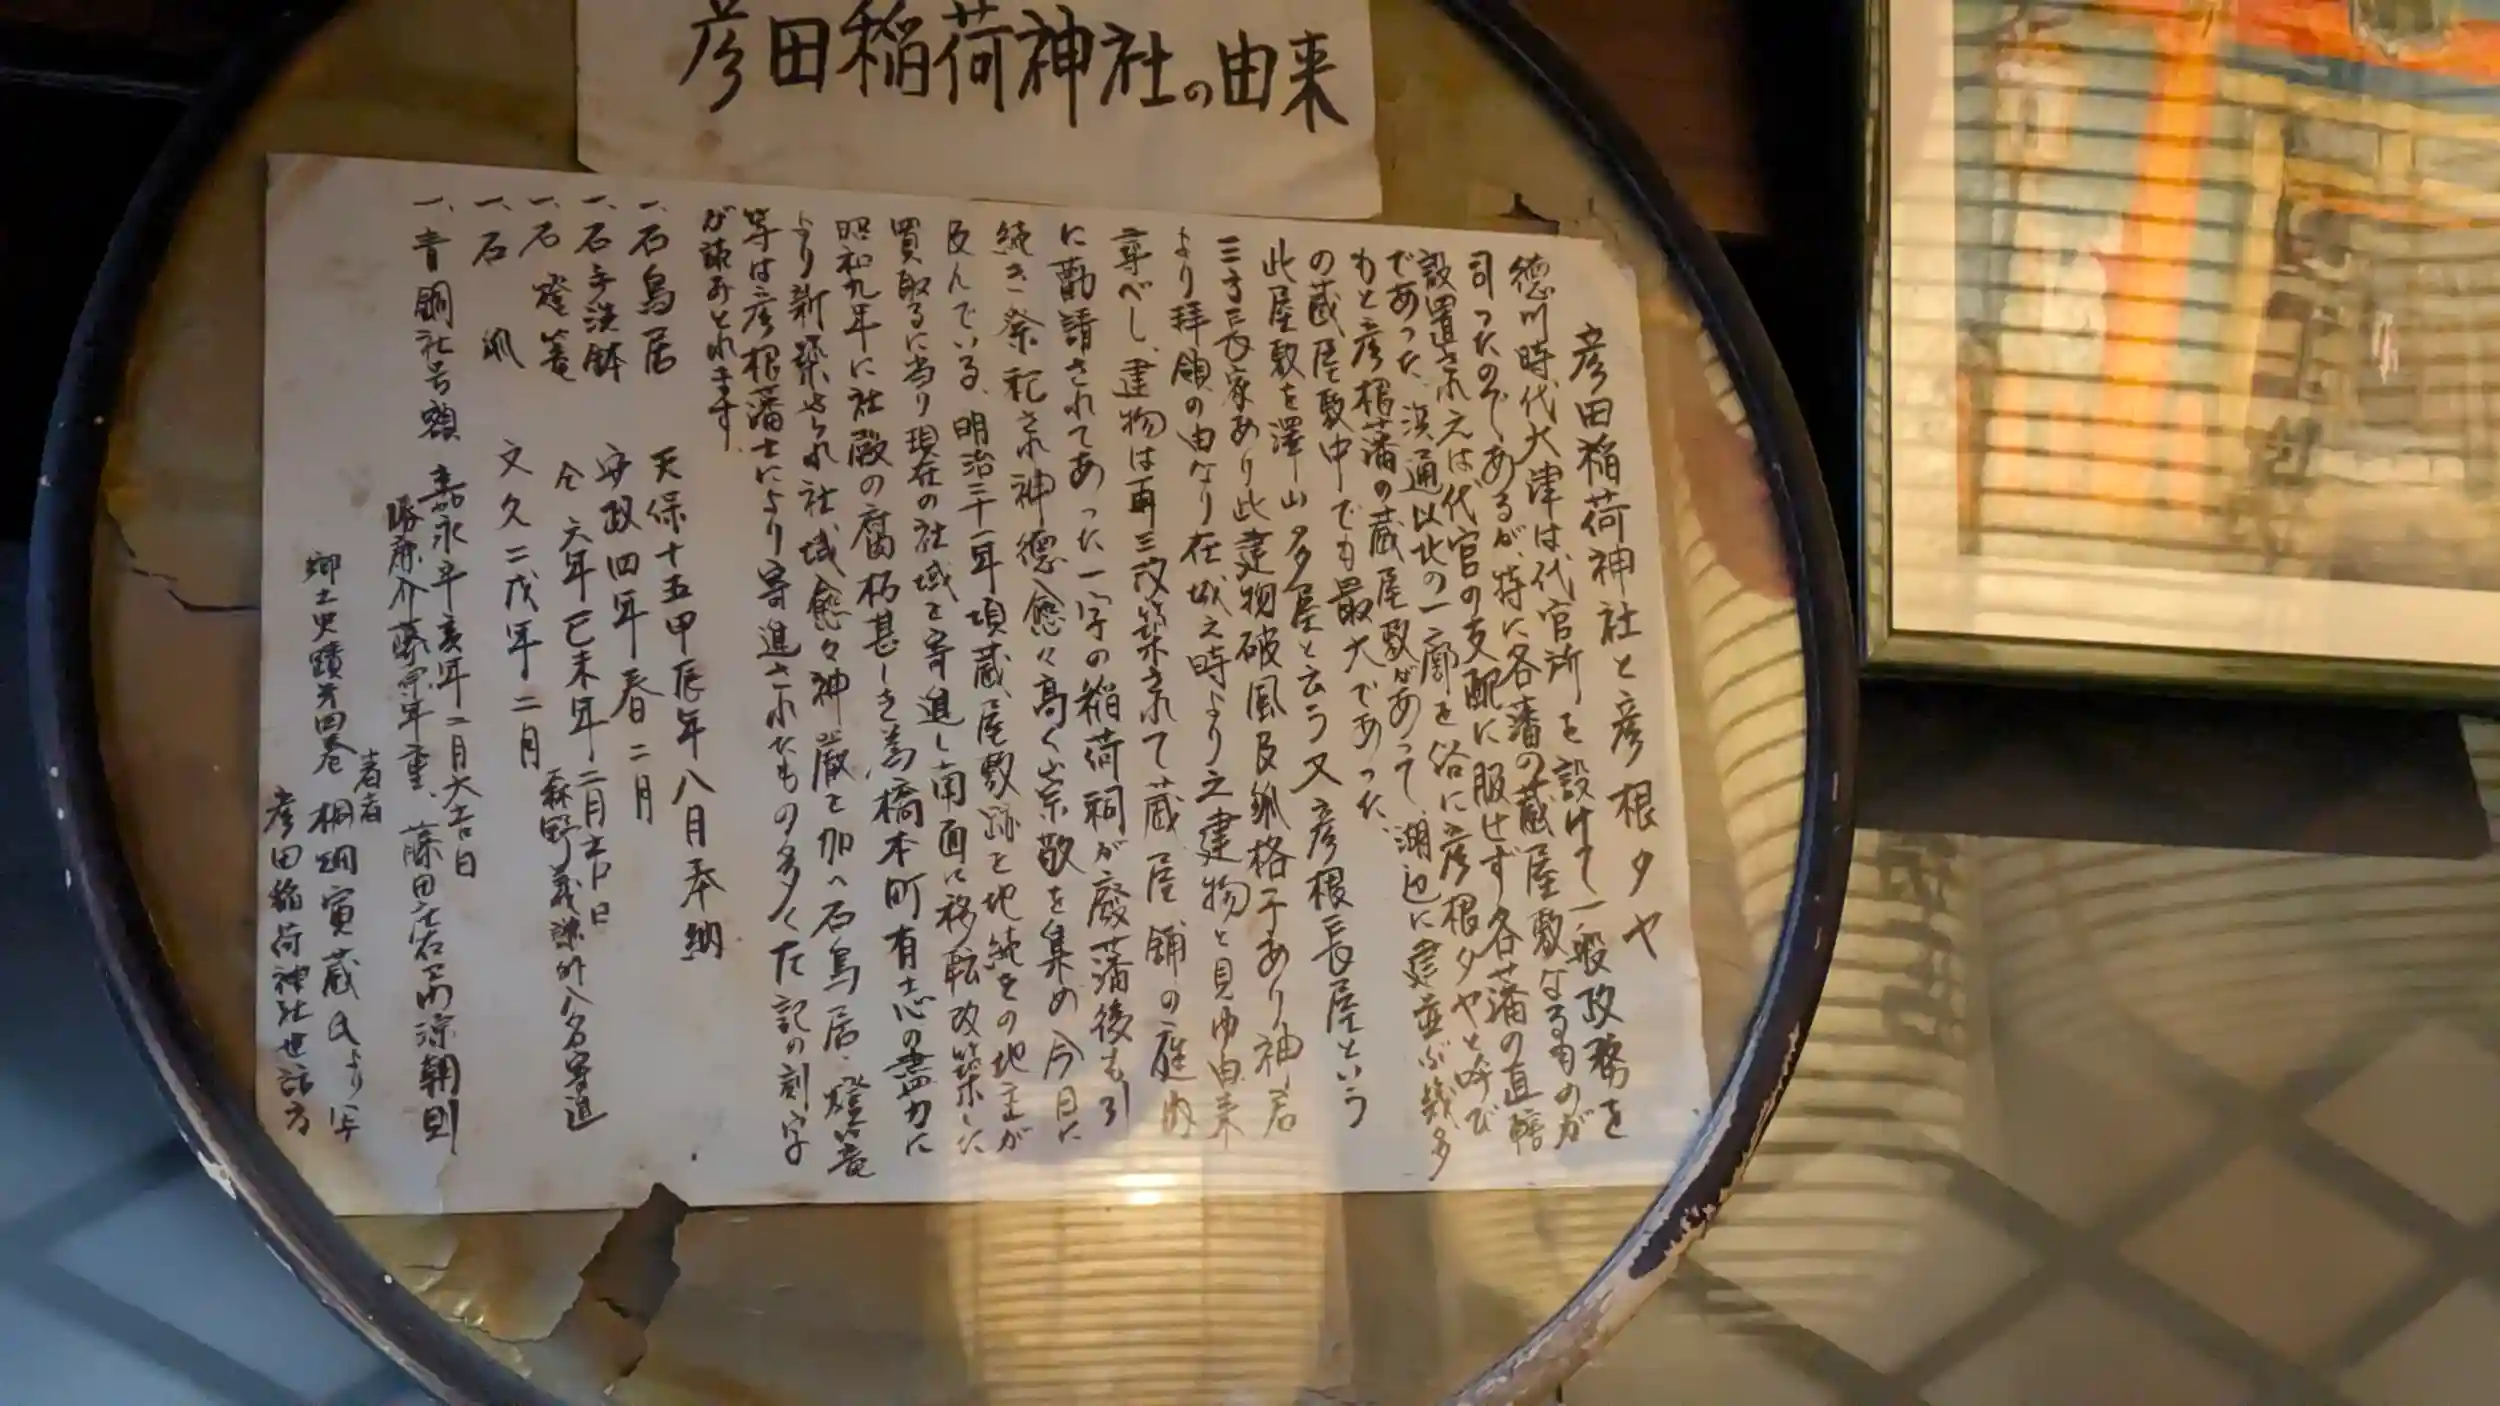 彦田稲荷神社の由来
彦田稲荷神社と彦根タヤ
徳川時代大津は代官所を設けて一般政務を
司ったのであるが、特に各藩の蔵屋敷なるものが
設置され之は代官の支配に服せず各藩の直轄
であった、浜通以北の一廓を俗に彦根タヤと呼び
もと彦根藩の蔵屋敷があって、湖辺に建並ぶ幾多
の蔵屋敷中でも最大であった、
此屋敷を澤山多屋と云う又彦根長屋という
三方長家あり此建物破風及狐格子あり神君
より拝領の由なり在城之時より之建物と見ゆ由来
尋べし、建物は再三改築されて蔵屋舗の庭内
に勧請されてあった一宇の稲荷祠が廃藩後も引
続き祭祀され神徳愈々高く崇敬を集め今日に
及んでいる、明治三十一年頃蔵屋敷跡を地続きの地主が
買取るに当り現在の社域を寄進し南面に移転改築した
昭和九年に社殿の腐朽甚しき為橋本町有志の盡力に
より新築せられ社域愈々神厳を加へ石鳥居、燈篭
等は彦根藩士により寄進されたもの多く左記の刻字
が読みとれます。
一、石鳥居 天保十五甲辰年八月奉納
一、石手洗鉢 安政四年春二月
一、石燈篭 仝六年已未年二月吉日 森野義謙外八名寄進
一、石狐 文久二戌年二月
一、青銅社号額 嘉永辛亥年二月大吉日
藤田庄右エ門源朝則
郷土史蹟第四巻 著者 桐畑寅蔵氏より写
彦田稲荷神社世話方